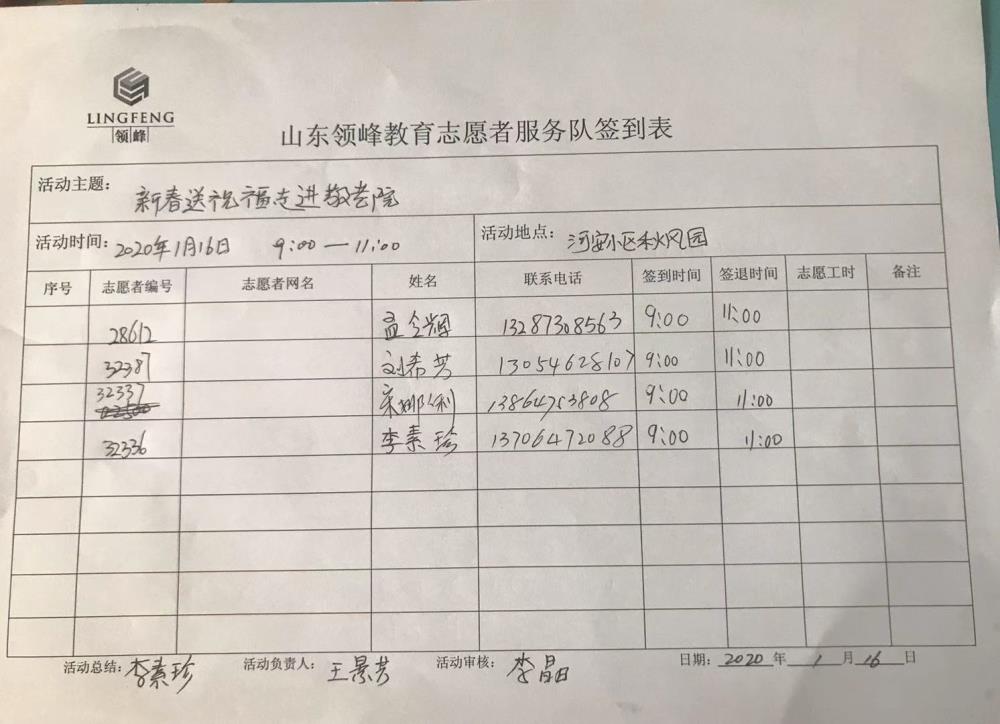 LINGFENG
领峰
山东领峰教育志愿者服务队签到表
活动主题： 新春送祝福走进敬老院
活动时间： 2020年1月16日 9:00—11:00 活动地点： 河安小区秋风园
序号 志愿者编号 志愿者网名 姓名 联系电话 签到时间 签退时间 志愿工时 备注
28612 孟令辉 13287308563 9:00 11:00
32387 刘希芳 13054628107 9:00 11:00
32337 宋娜利 13864753808 9:00 11:00
32336 李素珍 13706472088 9:00 11:00
活动总结： 李素珍 活动负责人： 王景芳 活动审核： 李晶 日期： 2020 年 1 月 16 日